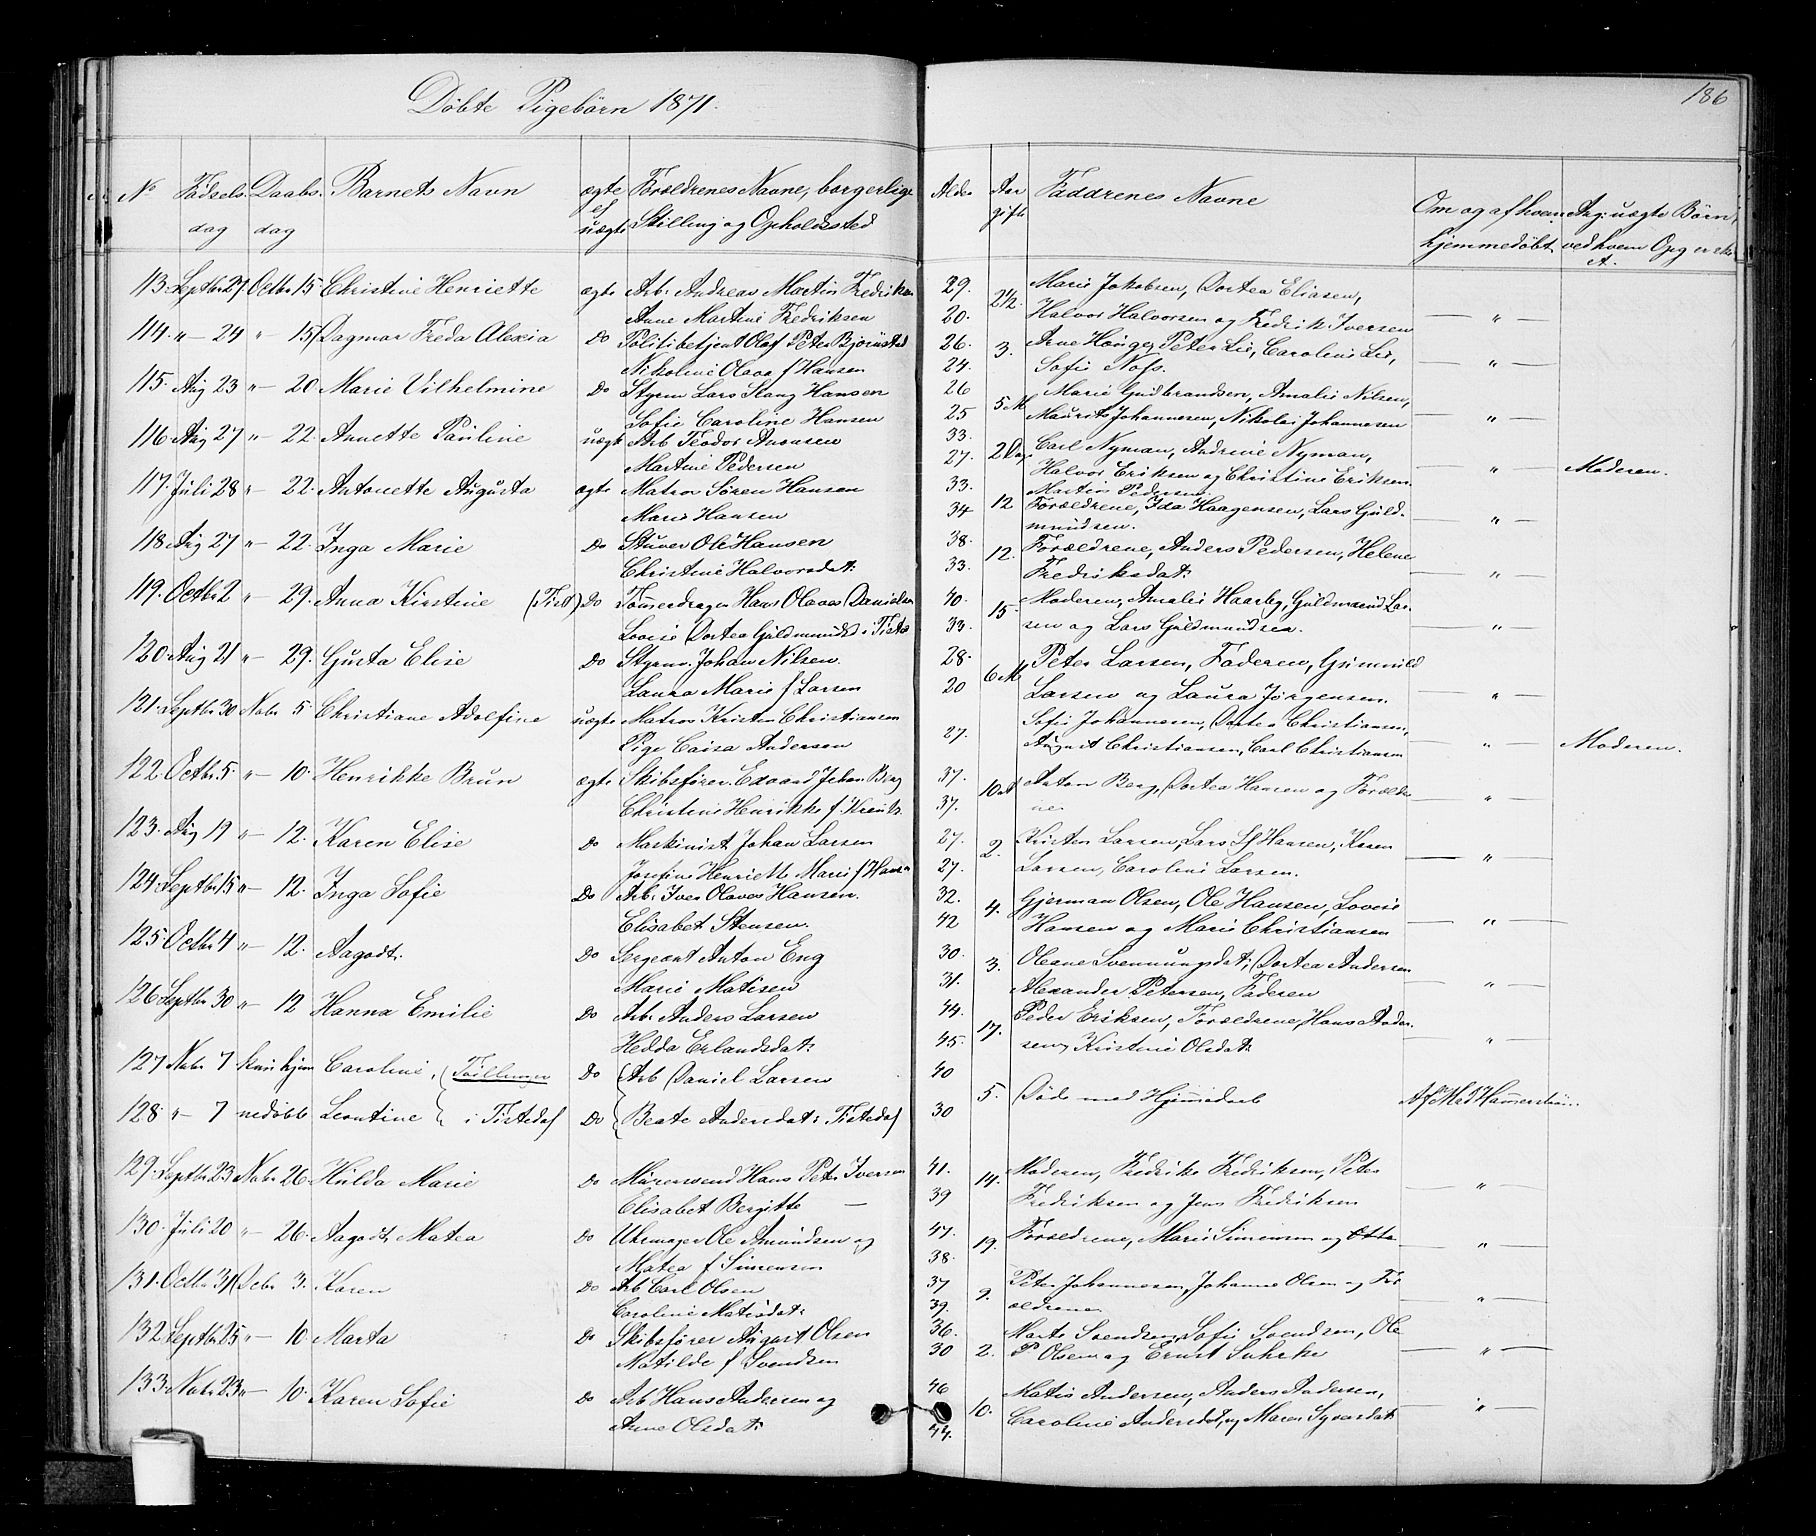 Döbte Pigebörn 1871.
186
No Födsels- dag Daabs- dag Barnets Navn ægte el uægte Forældrenes Navne, borgerlige Stilling og Opholdssted Alder Aar gift Faddrenes Navne Om og af hvem hjemmedöbt. Ang: uægte Börn, ved hvem Opg er sk
113. Septbr 27. Octbr 15. Christine Henriette ægte Arb. Andreas Martin Fredriksen 29. 2½. Marie Jakobsen, Dortea Eliasen,
Anne Martine Fredriksen 20. Halvor Halvorsen og Fredrik Iversen — " —
114. " — 24 " — 15 Dagmar Freda Alexia Do Politibetjent Olaf Peter Björnstad 26. 3. Arne Hönge, Peter Lie, Caroline Lie,
Nikoline Olava f Hansen 24. Sofie Nofs. — " —
115. Aug 23 " — 20 Marie Vilhelmine Do Styrm Lars Stang Hansen 26 5 M Marie Gudbrandsen, Amalie Nilsen,
Sofie Caroline Hansen 25 Maurits Johannesen, Nikolai Johannesen — " —
116 Aug 27 " — 22. Annette Pauline uægte Arb Teodor Aronsen 33. 2 Dag Carl Nyman, Andrine Nyman,
Martine Pedersen 27. Halvor Eriksen og Christine Eriksen. — " — Moderen.
Martin Pedersen.
117. Juli 28 " — 22. Antonette Augusta ægte Matros Sören Hansen 33. 12 Forældrene, Ida Haagensen, Lars Guld-
Marie Hansen 34 mundsen. — " —
118 Aug 27 " — 22. Inga Marie Do Stuver Ole Hansen 38. 12. Forældrene, Anders Pedersen, Helene
Christine Halvorsdat: 33. Fredriksdat: — " —
119. Octbr 2 " — 29. Anna Kirstine (Tist) Do Tömmerdrager Hans Olaves Danielsen 40. 15 Moderen, Amalie Haarby, Guldmund Lar-
Lovise Dortea Guldmundsd i Tisted 33. sen og Lars Guldmundsen. — " —
120 Aug 21 " — 29. Gusta Elise Do Styrm. Johan Nilsen. 28. 6 M Peter Larsen, Faderen, Gunnild
Laura Marie f Larsen 20 Larsen og Laura Jörgensen. — " —
121. Septbr 30 Novbr 5. Christiane Adolfine uægte Matros Kristen Christiansen Sofie Johannesen, Dortea Christiansen,
Pige Caisa Andersen 27. August Christiansen, Carl Christiansen — " — Moderen.
122. Octbr 5. " — 10. Henrikke Brun ægte Skibsförer. Edvard Johan Brag 37. 10 Anton Berg, Dortea Hansen og Foræld-
Christine Henrikke f. 37. ne — " —
123. Aug 19 " — 12. Karen Elise Do Maskinist Johan Larsen 27. 2. Kristen Larsen, Lars Hansen, Karen
Josefine Henriette Marie f Hansen 27. Larsen, Caroline Larsen. — " —
124. Septbr 15 " — 12. Inga Sofie Do Arb. Iver Olaves Hansen. 32. 4. Gjerman Olsen, Ole Hansen, Lovise
Elisabet Stensen. 42 Hansen og Marie Christiansen — " —
125. Octbr 4 " — 12. Aagodt. Do Sergeant Anton Eng 30. 3. Oleane Svennungsdat:, Dortea Andersen
Marie Matisen 31. Alexander Petersen, Faderen — " —
126. Septbr 30 " — 12 Hanna Emilie Do Arb. Anders Larsen 44. 17. Peder Eriksen, Forældrene, Hans Ander-
Hedda Erlandsdat: 45. sen, Kristine Olsdat: — " —
127 Novbr 7 kun hjem Caroline, (Tvillinger Do Arb Daniel Larsen 40 5. Döde med Hjemmedaab Af Mad Hammerström
128. " — 7 medöbt Leontine i Tistedal Do Beate Andersdat: i Tistedal 30
129. Septbr 23 Novbr 26. Hulda Marie Do Murersvend Hans Peter Iversen 41. 14. Moderen, Fredrike Fredriksen, Peter
Elisabet Bergitte — 39 Fredriksen og Jens Fredriksen — " —
130. Juli 20 " — 26. Aagodt Matea Do Uhrmager Ole Amundsen og 47. 19. Forældrene, Marie Simensen og Otto
Matea f Simensen 38. — " —
131. Octbr 31 Decbr 3. Karen Do Arb Carl Olsen 37 9. Peter Johannesen, Johanne Olsen og For-
Caroline Matisdat: 39. ældrene — " —
132. Septbr 25 " — 10. Marta Do Skibsförer August Olsen 36. 2. Marte Svendsen, Sofie Svendsen, Ole
Matilde f Svendsen 30 P Olsen og Ernst Suhrke — " —
133. Novbr 23 " — 10. Karen Sofie Do Arb Hans Andersen og 46 10. Matis Andersen, Anders Andersen,
Anne Olsdat: 44. Caroline Andersdat. og Maren Syversdat: — " —